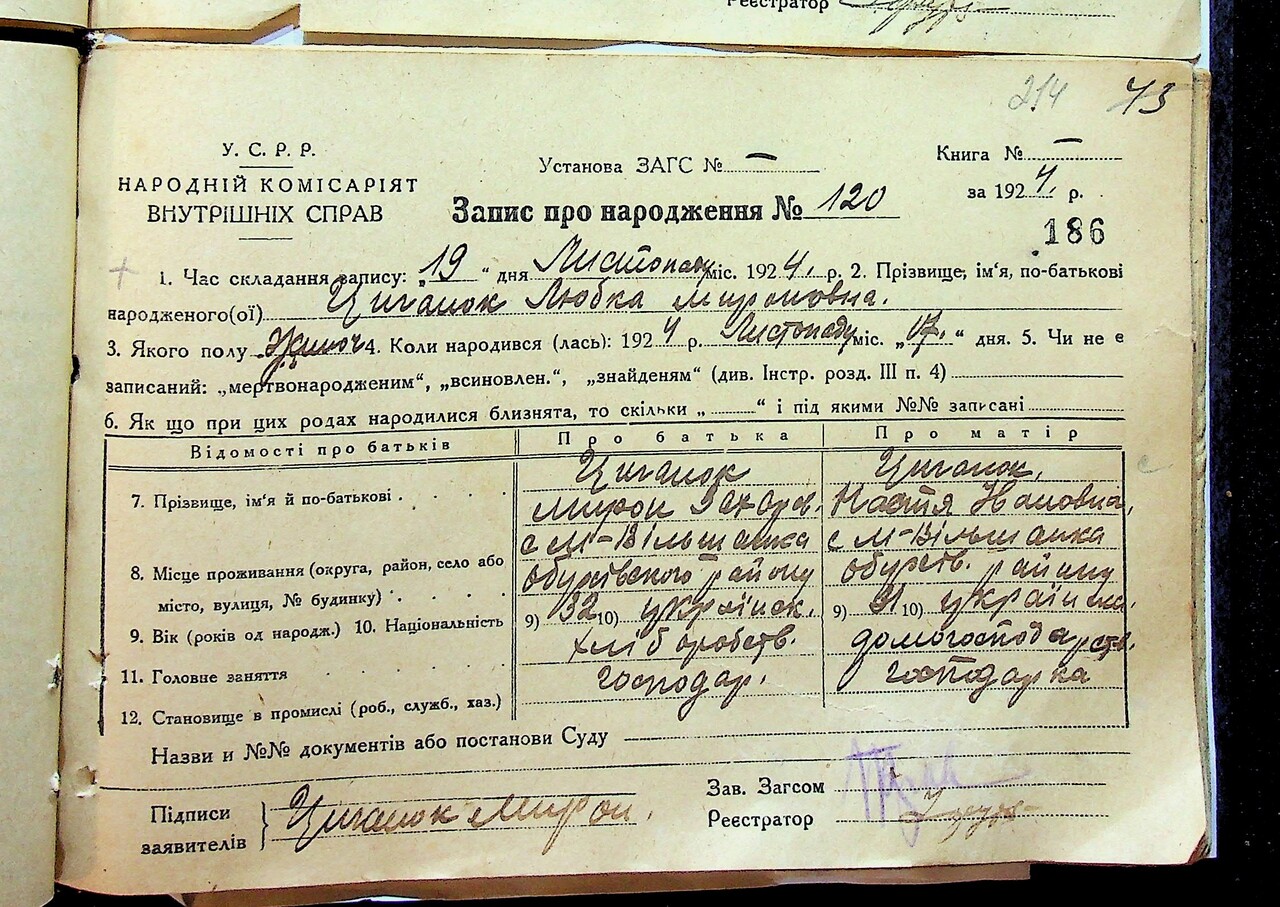 Реєстратор
214 43
У. С. Р. Р.
НАРОДНІЙ КОМІСАРІЯТ
ВНУТРІШНІХ СПРАВ
Установа ЗАГС № —
Запис про народження № 120
Книга № —
за 1924 р.
186
1. Час складання запису: „19“ дня Листопаду міс. 1924. р. 2. Прізвище, ім'я, по-батькові
народженого(ої) Циганок Любка Мироновна.
3. Якого полу Жіноч 4. Коли народився (лась): 1924 р. Листопаду міс. „17.“ дня. 5. Чи не є
записаний: „мертвонародженим“, „всиновлен.“, „знайденям“ (див. Інстр. розд. III п. 4)
6. Як що при цих родах народилися близнята, то скільки „ “ і під якими №№ записані
Відомості про батьків Про батька Про матір
7. Прізвище, ім'я й по-батькові Циганок Циганок,
Мирон Захаров. Настя
с М-Вільшанка с М-Вільшанка
8. Місце проживання (округа, район, село або
місто, вулиця, № будинку) району району
9. Вік (років од народж.) 10. Національність 9) 32 10) українск. 9) 31 10)
11. Головне заняття хліборобств. домогосподарств.
12. Становище в промислі (роб., служб., хаз.) господар. господарка
Назви и №№ документів або постанови Суду
Підписи
заявителів Циганок Мирон.
Зав. Загсом
Реєстратор